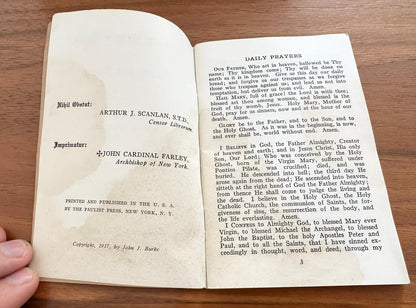 Nihil Obstat:
ARTHUR J. SCANLAN, S.T.D.,
Censor Librorum.
Imprimatur:
✠JOHN CARDINAL FARLEY,
Archbishop of New York.
PRINTED AND PUBLISHED IN THE U. S. A.
BY THE PAULIST PRESS, NEW YORK, N. Y.
Copyright, 1917, by John J. Burke
DAILY PRAYERS
OUR FATHER, Who art in heaven, hallowed be Thy
name; Thy kingdom come; Thy will be done on
earth as it is in heaven. Give us this day our daily
bread; and forgive us our trespasses as we forgive
those who trespass against us; and lead us not into
temptation, but deliver us from evil. Amen.
HAIL MARY, full of grace! the Lord is with thee;
blessed art thou among women, and blessed is the
fruit of thy womb, Jesus. Holy Mary, Mother of
God, pray for us sinners, now and at the hour of our
death. Amen.
GLORY be to the Father, and to the Son, and to
the Holy Ghost. As it was in the beginning, is now,
and ever shall be, world without end. Amen.
I BELIEVE in God, the Father Almighty, Creator
of heaven and earth; and in Jesus Christ, His only
Son, Our Lord; Who was conceived by the Holy
Ghost, born of the Virgin Mary, suffered under
Pontius Pilate, was crucified; died, and was
buried. He descended into hell; the third day He
arose again from the dead; He ascended into heaven,
sitteth at the right hand of God the Father Almighty;
from thence He shall come to judge the living and
the dead. I believe in the Holy Ghost, the Holy
Catholic Church, the communion of Saints, the for-
giveness of sins, the resurrection of the body, and
life everlasting. Amen.
I CONFESS to Almighty God, to blessed Mary ever
Virgin, to blessed Michael the Archangel, to blessed
John the Baptist, to the holy Apostles Peter and
Paul, and to all the Saints, that I have sinned ex-
ceedingly in thought, word, and deed, through my
3